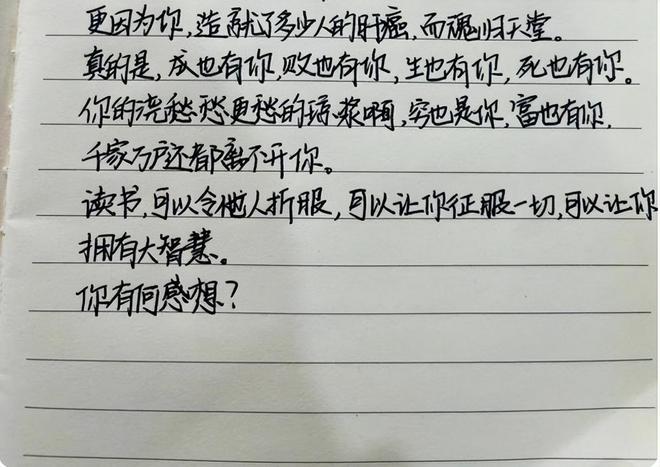 更因为你,造就了多少人的肝癌,而魂归天堂。
真的是,成也有你,败也有你,生也有你,死也有你。
你的浇愁愁更愁的琼浆啊,穷也是你,富也有你,
千家万户还都离不开你。
读书,可以令他人折服,可以让你征服一切,可以让你
拥有大智慧。
你有何感想?